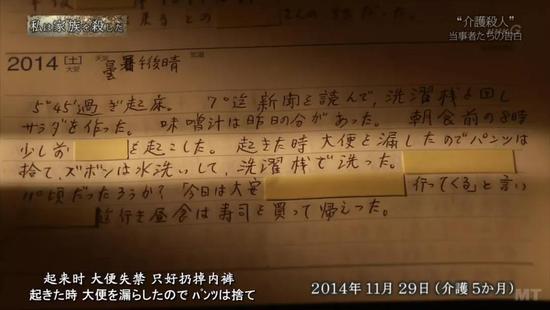 私は家族を殺した
"介護殺人"
当事者たちの告白
2014 (土)
大安
曇暑午後晴
5°45′過ぎ起床。 7°迄新聞を読んで、洗濯機を回し
サラダを作った。 味噌汁は昨日の分があった。 朝食前の8時
少し前 を起こした。 起きた時 大便を漏したのでパンツは
捨て、ズボンは水洗いして、洗濯機で洗った。
頃だったろうか? 「今日は大 行ってくる」と言い
行き昼食は寿司を買って帰えった。
起来时 大便失禁 只好扔掉内裤
起きた時 大便を漏らしたので パンツは捨て
2014年11月29日(介護5か月)
MT